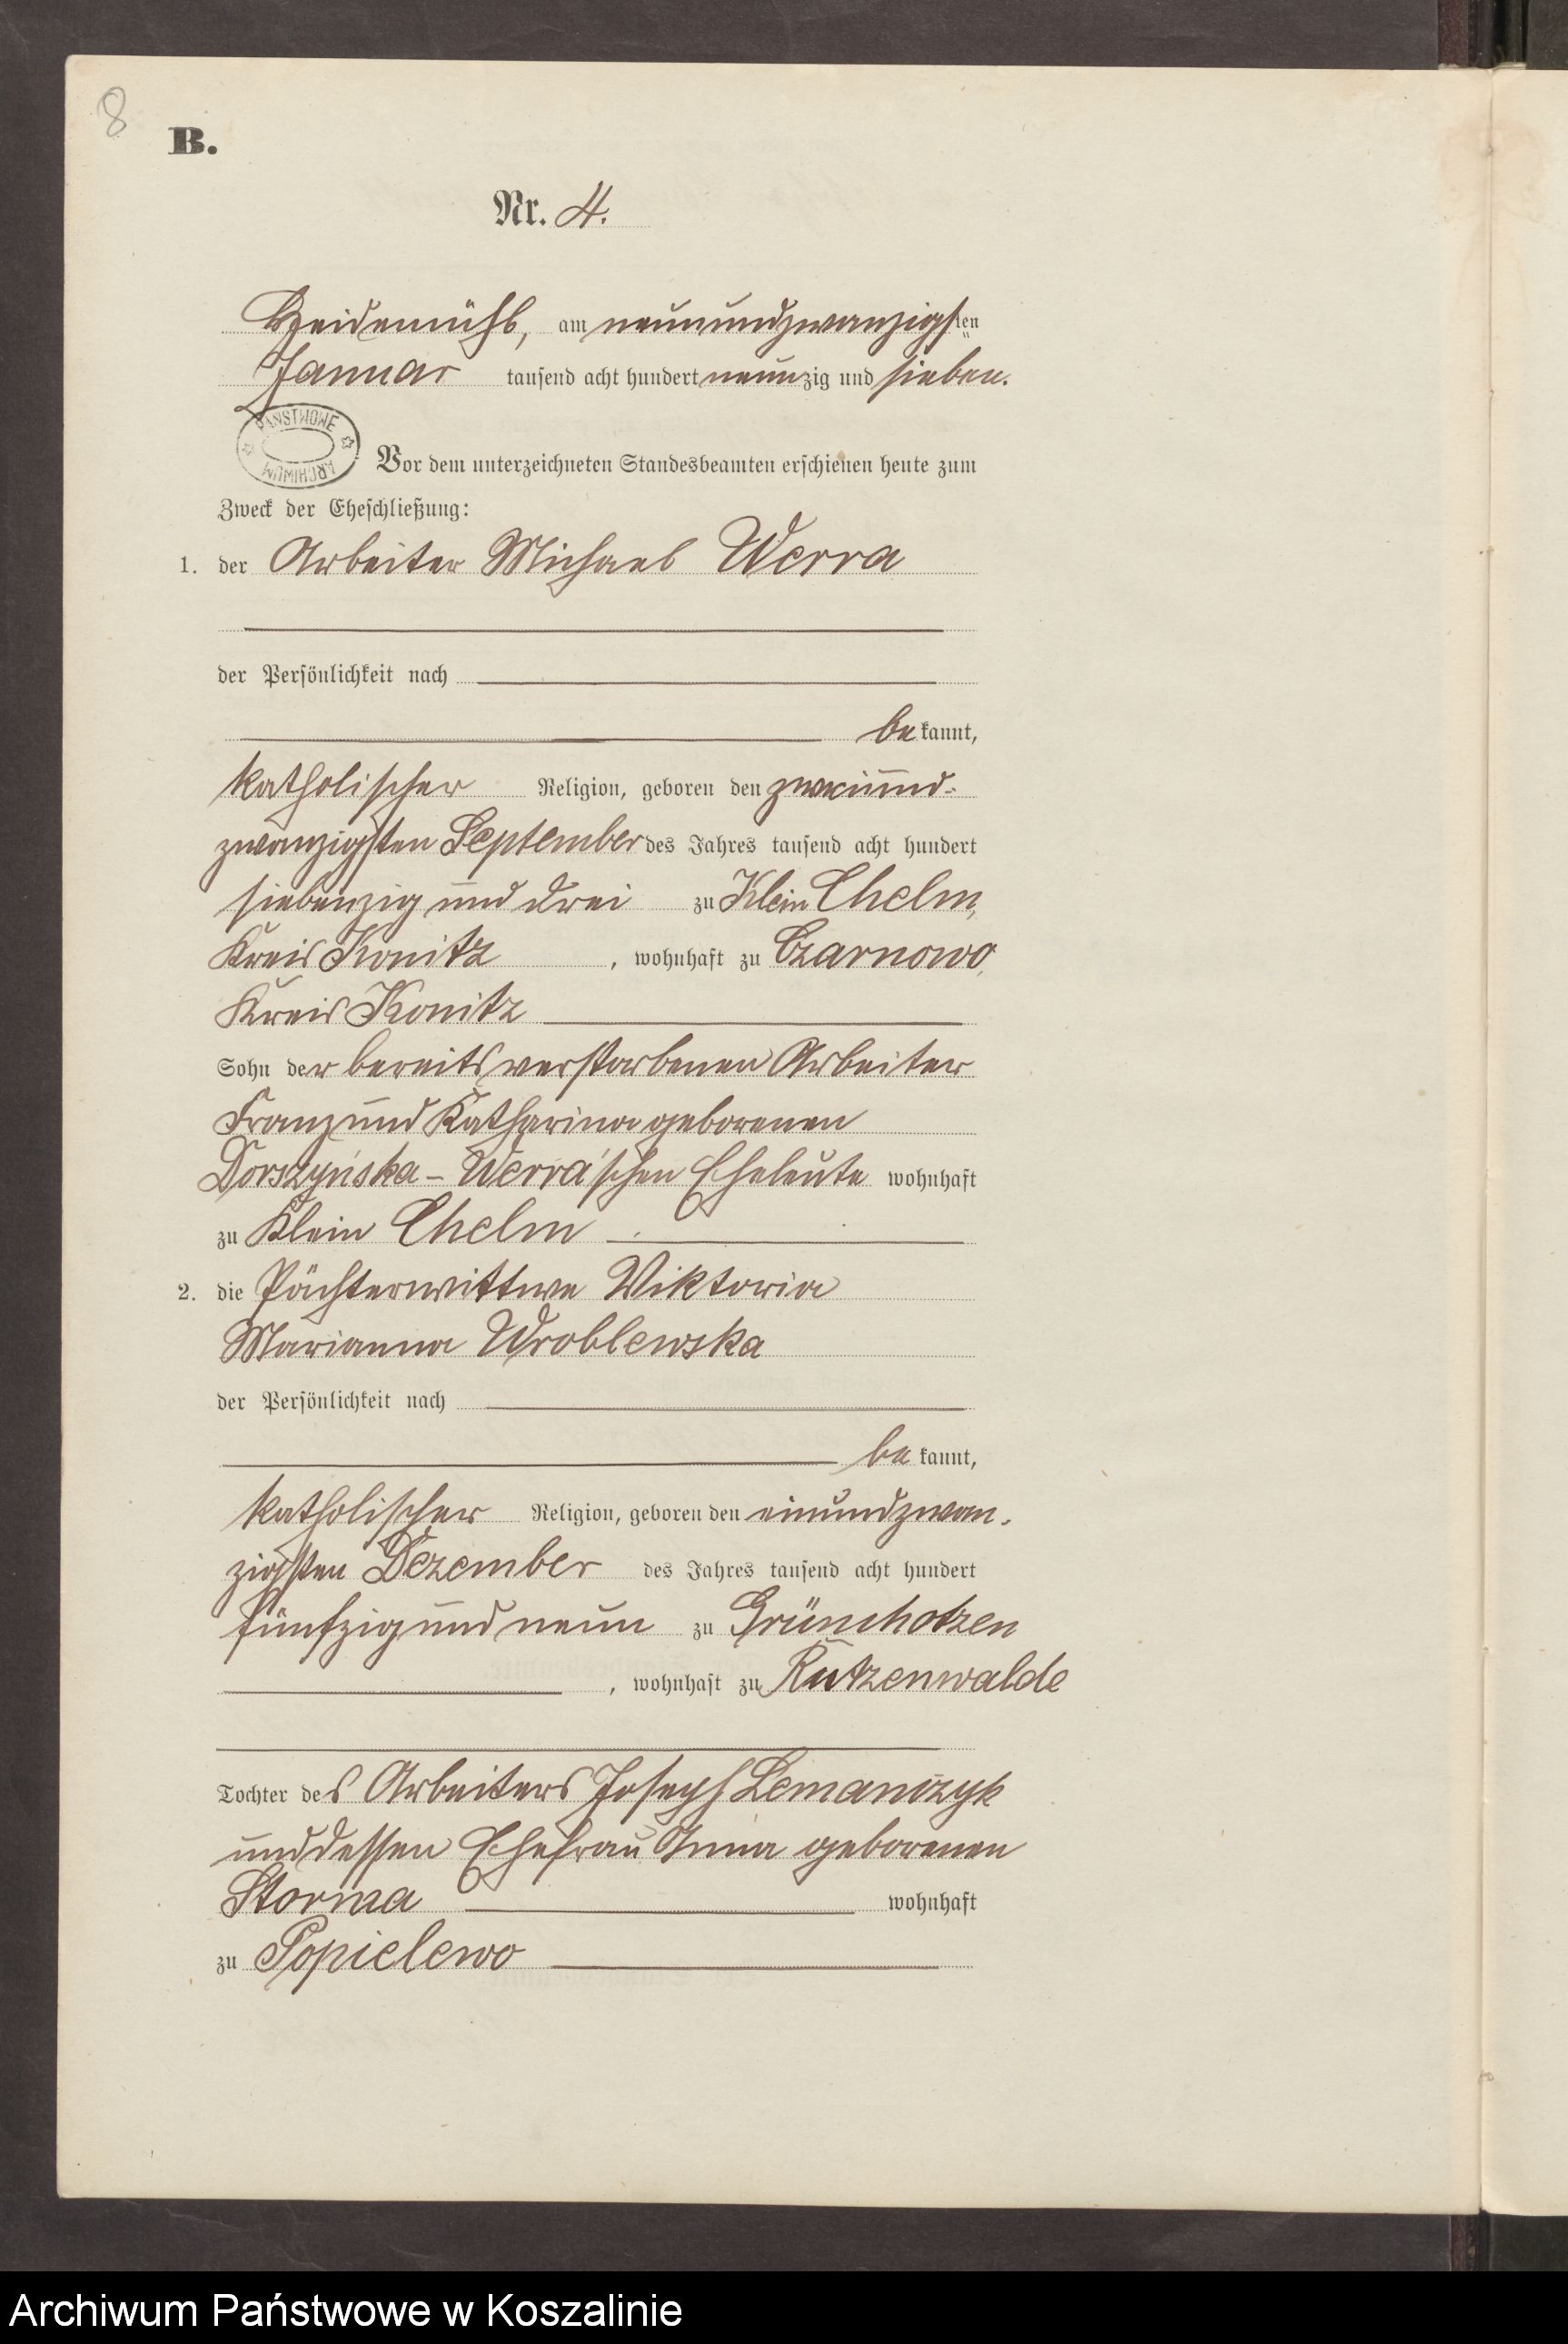 8
B.
Nr. 4.
Heidemühl, am neunundzwanzigsten
Januar tausend acht hundert neunzig und sieben.
PAŃSTWOWE ARCHIWUM
Vor dem unterzeichneten Standesbeamten erschienen heute zum
Zweck der Eheschließung:
1. der Arbeiter Michael Werra
der Persönlichkeit nach
bekannt,
katholischer Religion, geboren den zweiund-
zwanzigsten September des Jahres tausend acht hundert
siebenzig und drei zu Klein Chelm,
Kreis Konitz, wohnhaft zu Czarnowo,
Kreis Konitz
Sohn der bereits verstorbenen Arbeiter
Franz und Katharina geborenen
Dorszyńska-Werra'schen Eheleute wohnhaft
zu Klein Chelm
2. die Pächterwittwe Viktoria
Marianna Wroblewska
der Persönlichkeit nach
bekannt,
katholischer Religion, geboren den einundzwan-
zigsten Dezember des Jahres tausend acht hundert
fünfzig und neun zu Grünchotzen
, wohnhaft zu Rutzenwalde
Tochter des Arbeiters Joseph Lemańczyk
und dessen Ehefrau Anna geborenen
Storma wohnhaft
zu Popielewo
Archiwum Państwowe w Koszalinie